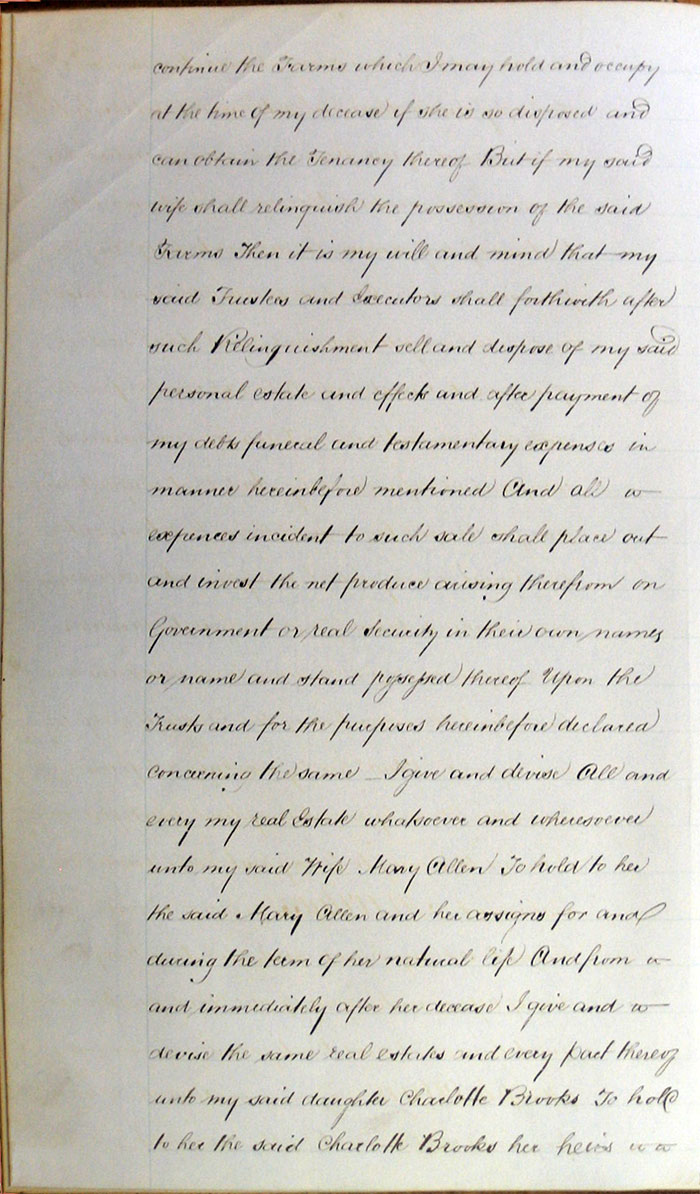 continue the Farms which I may hold and occupy
at the time of my decease if she is so disposed and
can obtain the Tenancy thereof But if my said
wife shall relinquish the possession of the said
Farms Then it is my will and mind that my
said Trustees and Executors shall forthwith after
such Relinquishment sell and dispose of my said
personal estate and effects and after payment of
my debts funeral and testamentary expenses in
manner hereinbefore mentioned And all
expences incident to such sale shall place out
and invest the net produce arising therefrom on
Government or real Security in their own names
or name and stand possessed thereof Upon the
Trusts and for the purposes hereinbefore declared
concerning the same – I give and devise All and
every my real Estate whatsoever and wheresoever
unto my said Wife Mary Allen To hold to her
the said Mary Allen and her assigns for and
during the term of her natural life And from
and immediately after her decease I give and
devise the same real estates and every part thereof
unto my said daughter Charlotte Brooks To hold
to her the said Charlotte Brooks her heirs